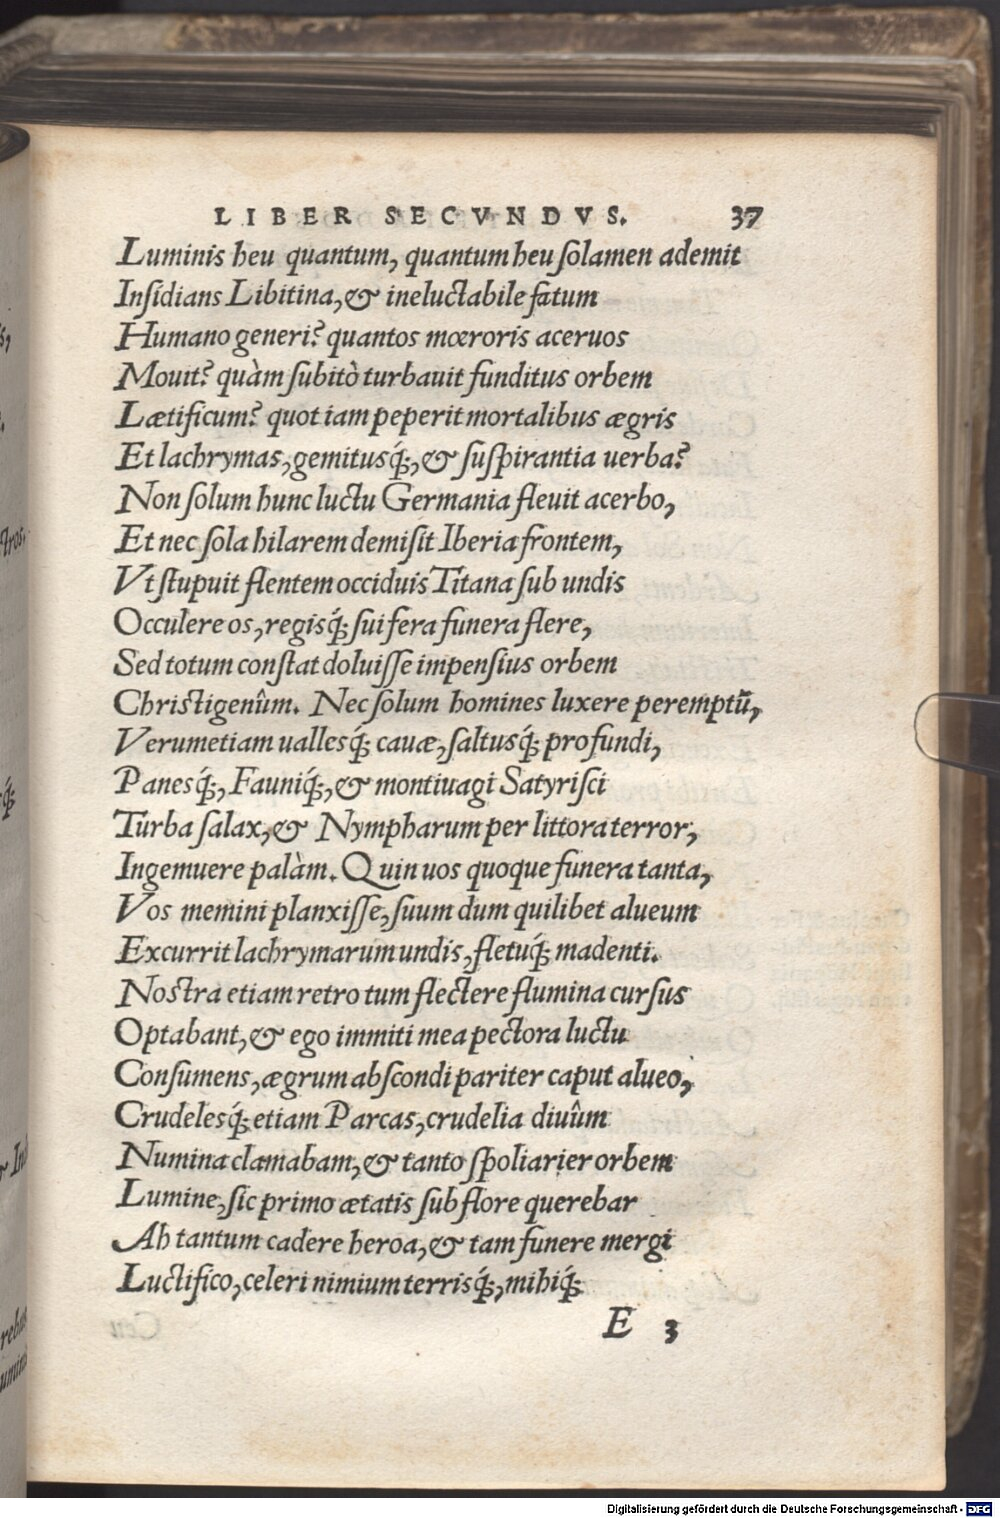 LIBER SECVNDVS. 37
Luminis heu quantum, quantum heu solamen ademit
Insidians Libitina, & ineluctabile fatum
Humano generi? quantos mœroris aceruos
Mouit? quàm subitò turbauit funditus orbem
Lætificum? quot iam peperit mortalibus ægris
Et lachrymas, gemitusq́;, & suspirantia uerba?
Non solum hunc luctu Germania fleuit acerbo,
Et nec sola hilarem demisit Iberia frontem,
Vt stupuit flentem occiduis Titana sub undis
Occulere os, regisq́; sui fera funera flere,
Sed totum constat doluisse impensius orbem
Christigenûm. Nec solum homines luxere peremptū,
Verumetiam uallesq́; cauæ, saltusq́; profundi,
Panesq́;, Fauniq́;, & montiuagi Satyrisci
Turba salax, & Nympharum per littora terror,
Ingemuere palàm. Quin uos quoque funera tanta,
Vos memini planxisse, suum dum quilibet alueum
Excurrit lachrymarum undis, fletuq́; madenti.
Nostra etiam retro tum flectere flumina cursus
Optabant, & ego immiti mea pectora luctu
Consumens, ægrum abscondi pariter caput alueo,
Crudelesq́; etiam Parcas, crudelia diuûm
Numina clamabam, & tanto spoliarier orbem
Lumine, sic primo ætatis sub flore querebar
Ah tantum cadere heroa, & tam funere mergi
Luctifico, celeri nimium terrisq́;, mihiq́;
E 3
Digitalisierung gefördert durch die Deutsche Forschungsgemeinschaft - DFG